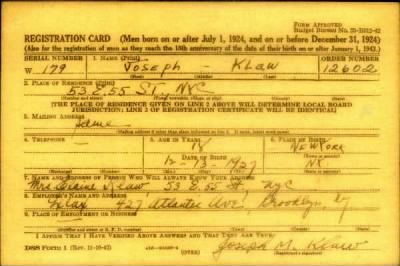 FORM APPROVED
Budget Bureau No.
REGISTRATION CARD (Men born on or after July 1, 1924, and on or before December 31, 1924)
(Also for the registration of men as they reach the 18th anniversary of the date of their birth on or after January 1, 1943.)
SERIAL NUMBER 1. NAME (Print) ORDER NUMBER
W 179 Joseph - KLAW 12602
2. PLACE OF RESIDENCE (Print)
53 E. 55 St. NYC
[THE PLACE OF RESIDENCE GIVEN ON LINE 2 ABOVE WILL DETERMINE LOCAL BOARD
JURISDICTION; LINE 2 OF REGISTRATION CERTIFICATE WILL BE IDENTICAL]
3. MAILING ADDRESS
Same
4. TELEPHONE 5. AGE IN YEARS 6. PLACE OF BIRTH
18 New York
DATE OF BIRTH
12-13-1927 NY
7. NAME AND ADDRESS OF PERSON WHO WILL ALWAYS KNOW YOUR ADDRESS
Mrs. Klaw 53 E. 55 St, NYC
8. EMPLOYER'S NAME AND ADDRESS
427 Atlantic Ave Brooklyn, NY
9. PLACE OF EMPLOYMENT OR BUSINESS
I AFFIRM THAT I HAVE VERIFIED ABOVE ANSWERS AND THAT THEY ARE TRUE.
DSS Form 1 (OVER) Joseph M. Klaw